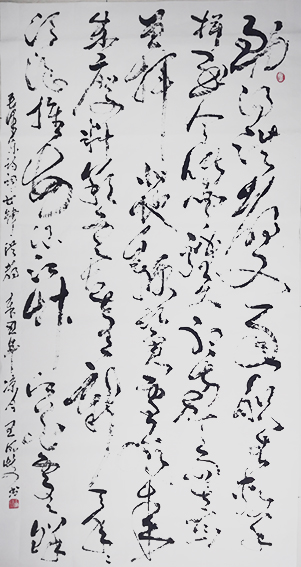 到得洪都又一年祖生击
楫至今传闻鸡久听南天雨立马
曾挥北地鞭鬓雪飞来
成废料彩云长在有新天年年
后浪推前浪江草江花处处鲜
毛泽东诗词七律洪都辛丑年 王 书